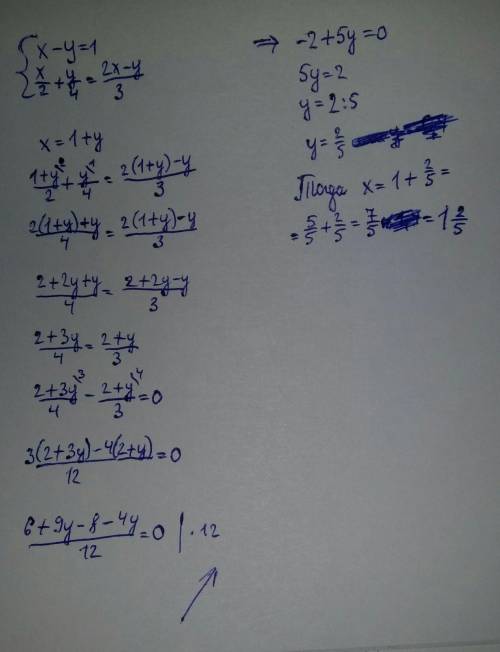 { x-y=1
x/2 + y/4 = (2x-y)/3
x=1+y
(1+y)²/2 + y¹/4 = (2(1+y)-y)/3
(2(1+y)+y)/4 = (2(1+y)-y)/3
(2+2y+y)/4 = (2+2y-y)/3
(2+3y)/4 = (2+y)/3
(2+3y)³/4 - (2+y)⁴/3 = 0
(3(2+3y)-4(2+y))/12 = 0
(6+9y-8-4y)/12 = 0 | ·12
⇒ -2+5y=0
5y=2
y=2:5
y=2/5
Тогда x=1+2/5=
=5/5+2/5=7/5=1 2/5